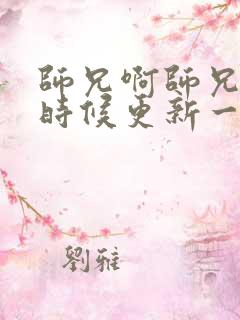 師兄啊師兄
時候更新一
劉雅